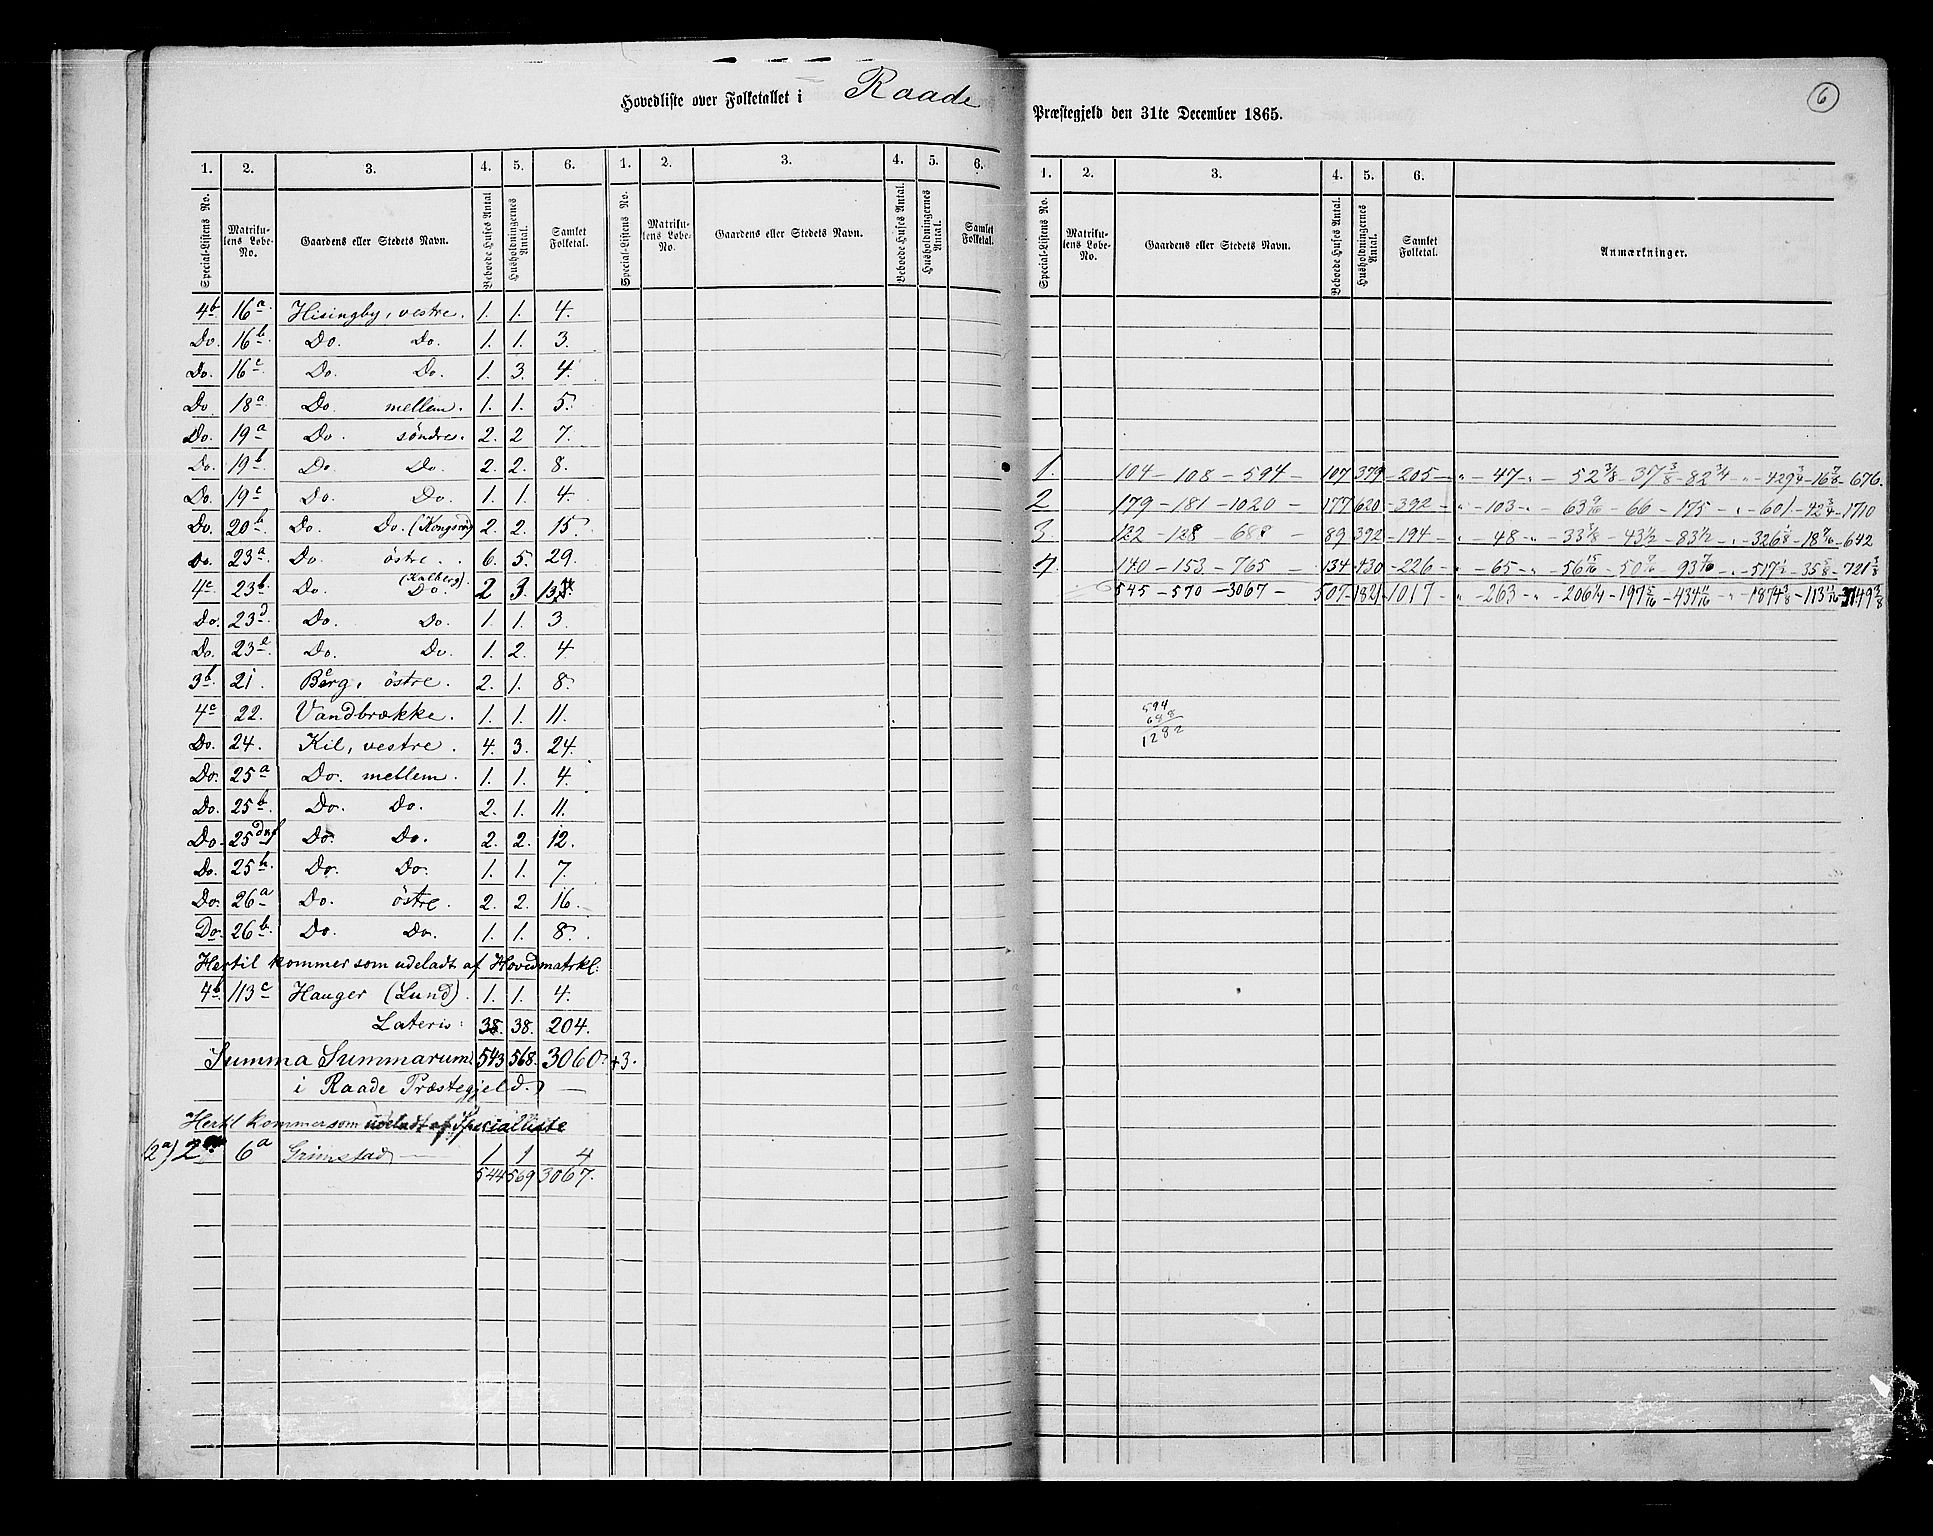 Hovedliste over Folketallet i Raade Præstegjeld den 31te December 1865.
6
1. 2. 3. 4. 5. 6. 1. 2. 3. 4. 5. 6.
Special-Listens No. Matrikulens Løbe-No. Gaardens eller Stedets Navn. Beboede Huses Antal Husholdningernes Antal. Samlet Folketal. Special-Listens No. Matrikulens Løbe-No. Gaardens eller Stedets Navn. Beboede Huses Antal. Husholdningernes Antal. Samlet Folketal.
4b 16a Hisingby, vestre. 1. 1. 4.
Do. 16b Do. Do. 1. 1. 3.
Do. 16c Do. Do. 1. 3. 4.
Do 18a Do. mellem. 1. 1. 5.
Do. 19a Do. söndre. 2. 2 7.
Do. 19b Do. Do. 2. 2. 8.
Do. 19c Do. Do. 1. 1. 4.
Do. 20b Do. Do. 2. 2. 15.
Do. 23a Do. östre. 6. 5. 29.
4c 23b Do. (Kalberg) Do. 2 3.
Do. 23d Do. Do. 1. 1. 3.
Do. 23e Do. Do. 1. 2. 4
3b 21. Berg, östre. 2. 1. 8.
4c 22. Vandbrække. 1. 1. 11.
Do. 24. Kil, vestre. 4. 3. 24.
Do. 25a Do. mellem. 1. 1. 4.
Do. 25b Do. Do. 2. 1. 11.
Do. 25 Do. Do. 2. 2. 12.
Do. 25h Do. Do. 1. 1. 7.
Do. 26a Do. östre. 2. 2. 16.
Do. 26b Do. Do. 1. 1. 8.
Hertil kommer som udeladt af Hovedmatrkl:
4b 113c Hauger (Lund). 1. 1. 4.
Lateris: 38. 38. 204.
Summa Summarum 543 568. 3060. +3.
i Raade Præstegjeld.
Hertil kommer som udeladt af Specialliste
(2a) 2 6a Grimstad 1 1 4
544 569 3067.
1. 2. 3. 4. 5. 6.
Special-Listens No. Matrikulens Løbe-No. Gaardens eller Stedets Navn. Beboede Huses Antal. Husholdningernes Antal. Samlet Folketal. Anmærkninger.
1. 104 - 108 - 594 - 107 379 - 205 - " - 47 - " - 52 3/8 - 37 3/8 - 82 3/4 - " - 429 3/4 - 16 7/8 - 676.
2 179 - 181 - 1020 - 177 620 - 392 - " - 103 - " - 63 9/16 - 66 - 175 - " - 601 - 42 3/4 - 1710
3. 122 - 128 - 688 - 89 392 - 194 - " - 48 - " - 33 5/8 - 43 1/2 - 83 1/2 - " - 326 1/8 - 18 7/16 - 642
4. 140 - 153 - 765 - 134 - 430 - 226 - " - 65 - " - 56 15/16 - 50 7/16 - 93 7/16 - " - 517 1/2 - 35 5/8 - 721 3/8
545 - 570 - 3067 - 507 - 1821 - 1017 - " - 263 - " - 206 1/4 - 197 5/16 - 434 11/16 - " - 1874 3/8 - 113 11/16 - 3749 3/8
594
688
1282